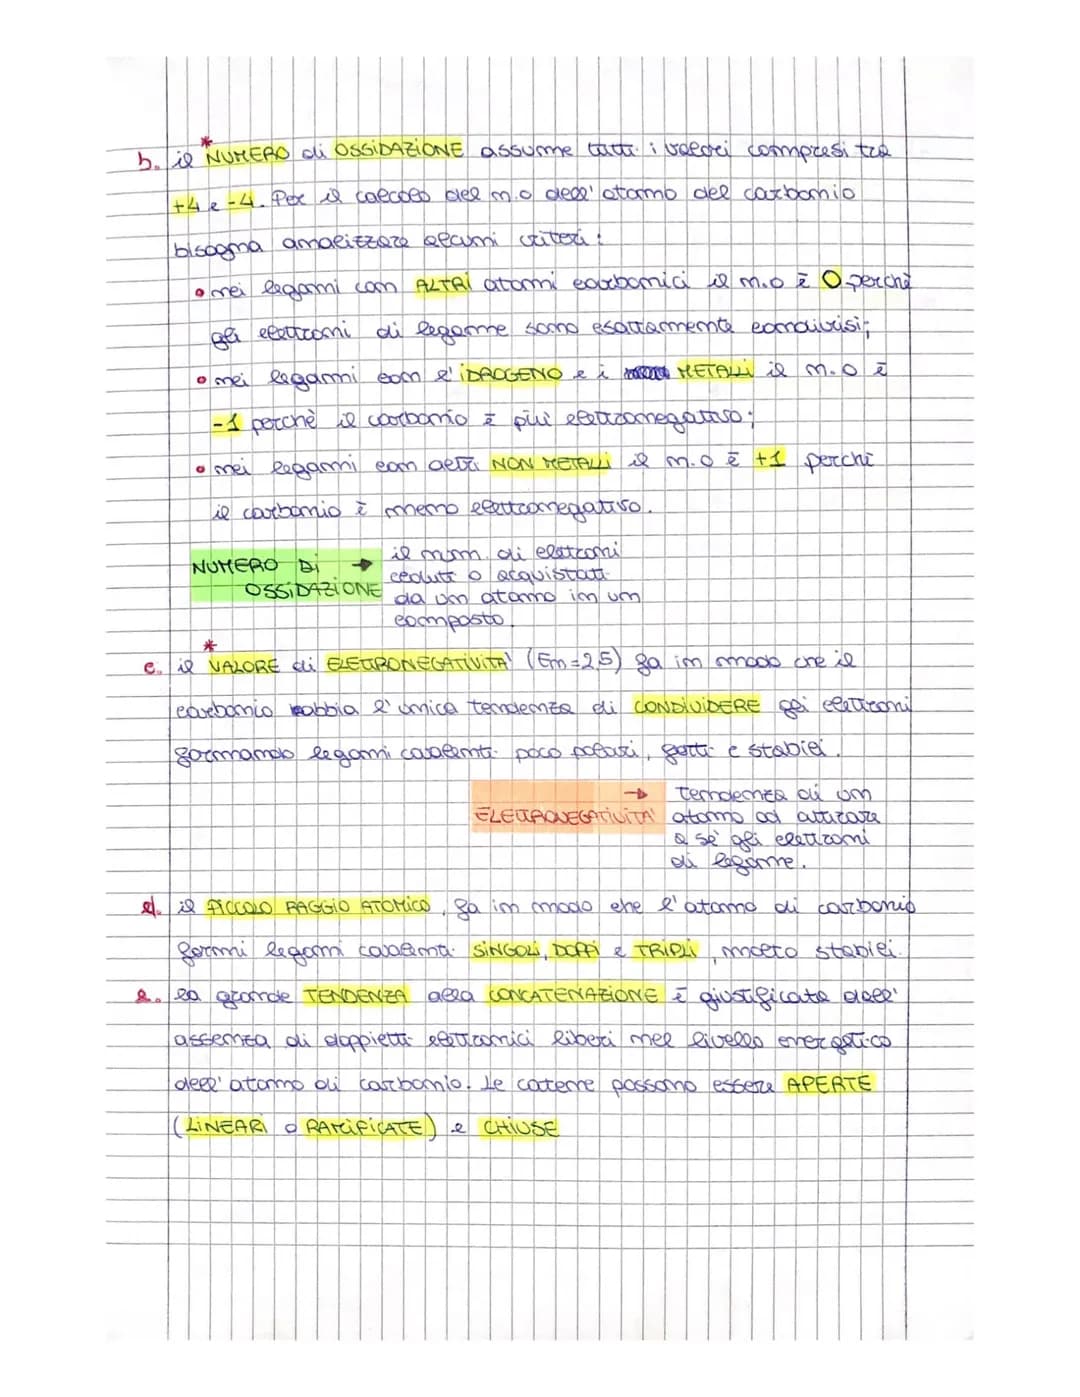 b. il *NUMERO di OSSIDAZIONE assume tutti i valori compresi tra
+4 e -4. Per il calcolo del n.o dell'atomo del carbonio
bisogna analizzare alcuni criteri:
• nei legami con ALTRI atomi carbonici il n.o è 0 perchè
gli elettroni di legame sono esattamente condivisi;
• nei legami con l'IDROGENO e i METALLI il n.o è
-1 perchè il carbonio è più elettronegativo;
• nei legami con altri NON METALLI il n.o è +1 perchè
il carbonio è meno elettronegativo.
NUMERO Di OSSiDAZiONE → il num. di elettroni
ceduti o acquistati
da un atomo in un
composto.
c. il *VALORE di ELETTRONEGATIVITA' (En=2,5) fa in modo che il
carbonio abbia l'unica tendenza di CONDIVIDERE gli elettroni
formando legami covalenti poco polari, forti e stabili.
ELETTRONEGATIVITA' → tendenza di un
atomo ad attirare
a sè gli elettroni
di legame.
d. il PICCOLO RAGGIO ATOMICO, fa in modo che l'atomo di carbonio
formi legami covalenti SINGOLI, DOPPI e TRIPLI, molto stabili.
e. la grande TENDENZA alla CONCATENAZIONE è giustificata dall'
assenza di doppietti elettronici liberi nel livello energetico
dell'atomo di carbonio. Le catene possono essere APERTE
(LINEARI o RAMIFICATE) e CHIUSE